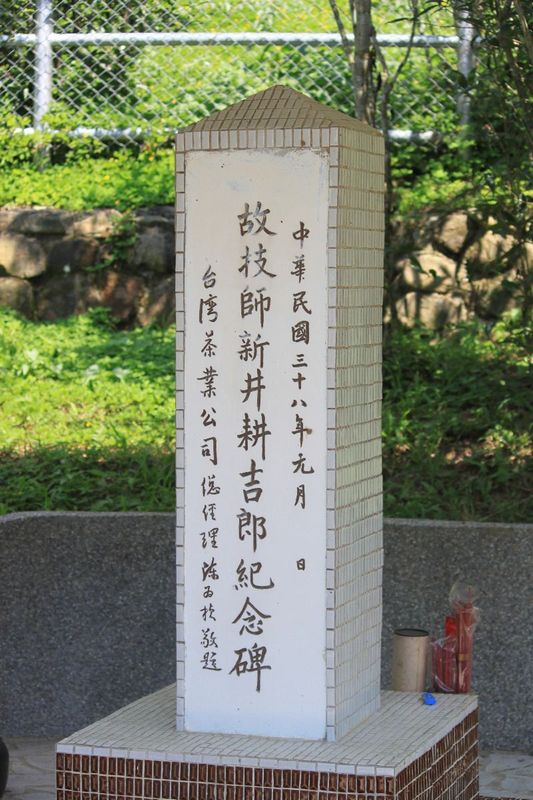 中華民國三十八年元月 日
故技師新井耕吉郎紀念碑
台湾茶業公司総経理陳為禎敬題